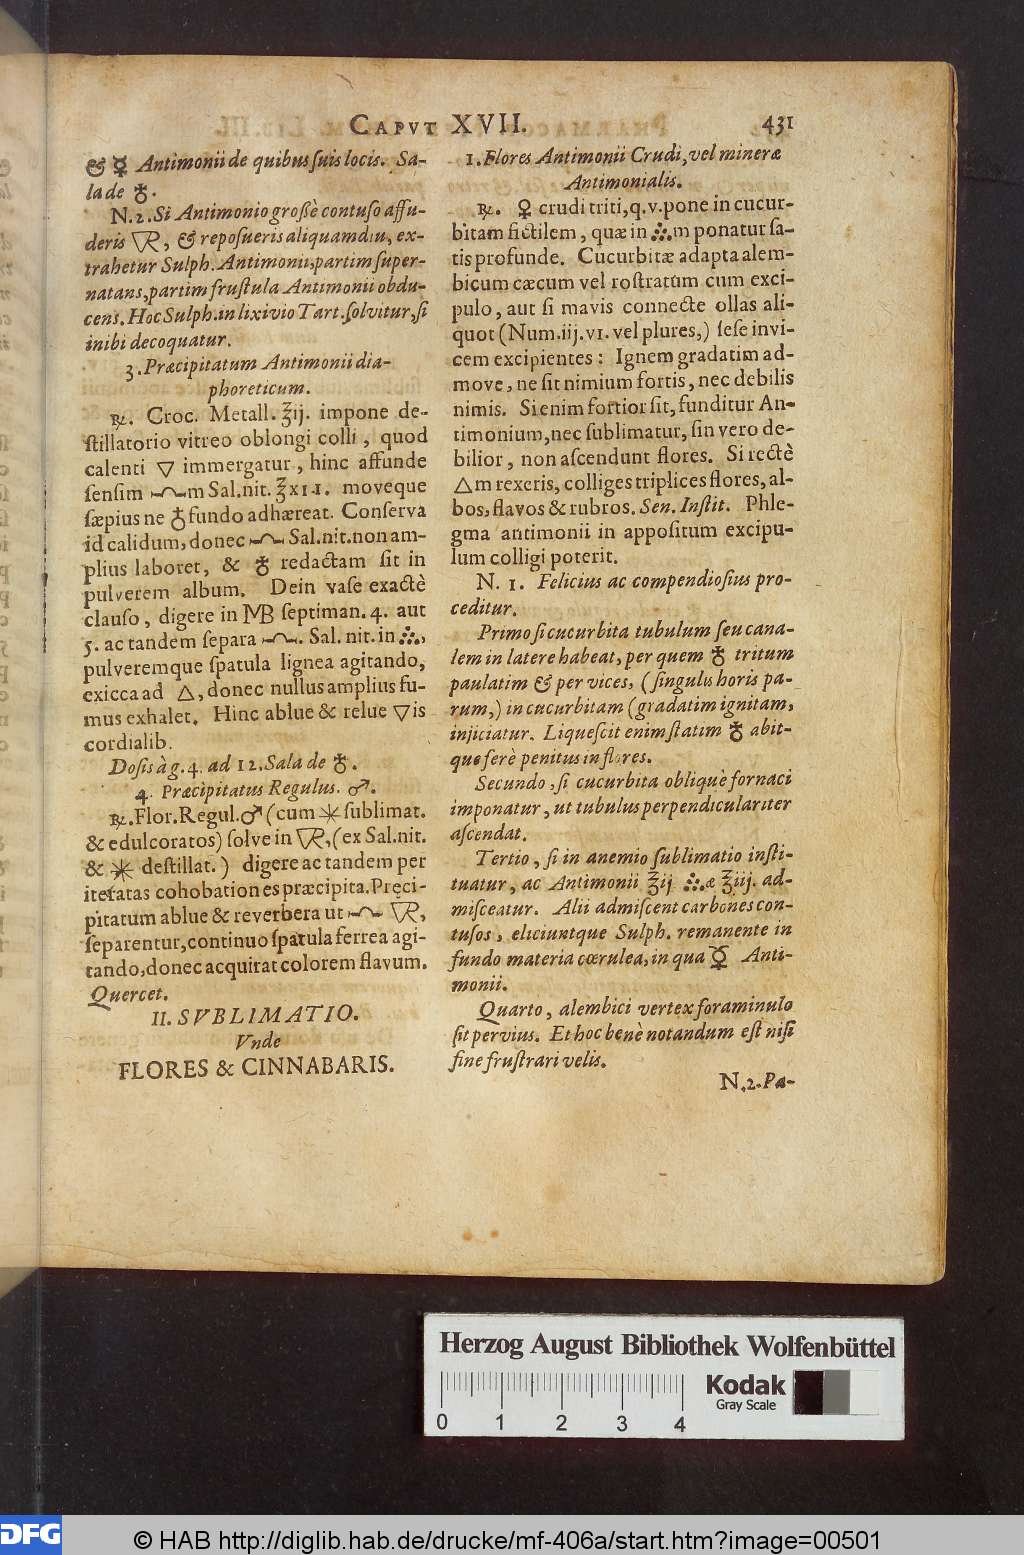 CAPVT XVII. 431
& ☿ Antimonii de quibus ſuis locis. Sa-
la de ♁.
N. 2. Si Antimonio groſsè contuſo affu-
deris 🜆, & repoſueris aliquamdiu, ex-
trahetur Sulph. Antimonii, partim ſuper-
natans, partim fruſtula Antimonii obdu-
cens. Hoc Sulph. in lixivio Tart. ſolvitur, ſi
inibi decoquatur.
3. Præcipitatum Antimonii dia-
phoreticum.
℞. Croc. Metall. ℥ij. impone de-
ſtillatorio vitreo oblongi colli, quod
calenti 🜄 immergatur, hinc affunde
ſenſim m Sal. nit. ℥xii. moveque
ſæpius ne ♁ fundo adhæreat. Conſerva
id calidum, donec Sal. nit. non am-
plius laboret, & ♁ redactam ſit in
pulverem album. Dein vaſe exactè
clauſo, digere in MB ſeptiman. 4. aut
5. ac tandem ſepara . Sal. nit. in ,
pulveremque ſpatula lignea agitando,
exicca ad 🜂, donec nullus amplius fu-
mus exhalet. Hinc ablue & relue 🜄is
cordialib.
Doſis à g. 4. ad 12. Sala de ♁.
4. Præcipitatus Regulus. ♂.
℞. Flor. Regul. ♂ (cum ✳ ſublimat.
& edulcoratos) ſolve in 🜆, (ex Sal. nit.
& ✳ deſtillat.) digere ac tandem per
iteratas cohobationes præcipita. Præci-
pitatum ablue & reverbera ut 🜆,
ſeparentur, continuo ſpatula ferrea agi-
tando, donec acquirat colorem flavum.
Quercet.
II. SVBLIMATIO.
Vnde
FLORES & CINNABARIS.
1. Flores Antimonii Crudi, vel mineræ
Antimonialis.
℞. ♀ crudi triti, q. v. pone in cucur-
bitam fictilem, quæ in m ponatur ſa-
tis profunde. Cucurbitæ adapta alem-
bicum cæcum vel roſtratum cum exci-
pulo, aut ſi mavis connecte ollas ali-
quot (Num. iij. vi. vel plures,) ſeſe invi-
cem excipientes: Ignem gradatim ad-
move, ne ſit nimium fortis, nec debilis
nimis. Si enim fortior ſit, funditur An-
timonium, nec ſublimatur, ſin vero de-
bilior, non aſcendunt flores. Si rectè
🜂m rexeris, colliges triplices flores, al-
bos, flavos & rubros. Sen. Inſtit. Phle-
gma antimonii in appoſitum excipu-
lum colligi poterit.
N. 1. Felicius ac compendioſius pro-
ceditur.
Primo ſi cucurbita tubulum ſeu cana-
lem in latere habeat, per quem ♁ tritum
paulatim & per vices, (ſingulis horis pa-
rum,) in cucurbitam (gradatim ignitam,
injiciatur. Liqueſcit enim ſtatim ♁ abit-
que ferè penitus in flores.
Secundo, ſi cucurbita obliquè fornaci
imponatur, ut tubulus perpendiculariter
aſcendat.
Tertio, ſi in anemio ſublimatio inſti-
tuatur, ac Antimonii ℥ij æ ℥iij. ad-
miſceatur. Alii admiſcent carbones con-
tuſos, eliciuntque Sulph. remanente in
fundo materia cœrulea, in qua ☿ Anti-
monii.
Quarto, alembici vertex foraminulo
ſit pervius. Et hoc benè notandum eſt niſi
fine fruſtrari velis.
N. 2. Pa-
Herzog August Bibliothek Wolfenbüttel
0 1 2 3 4
Kodak
Gray Scale
DFG
© HAB http://diglib.hab.de/drucke/mf-406a/start.htm?image=00501